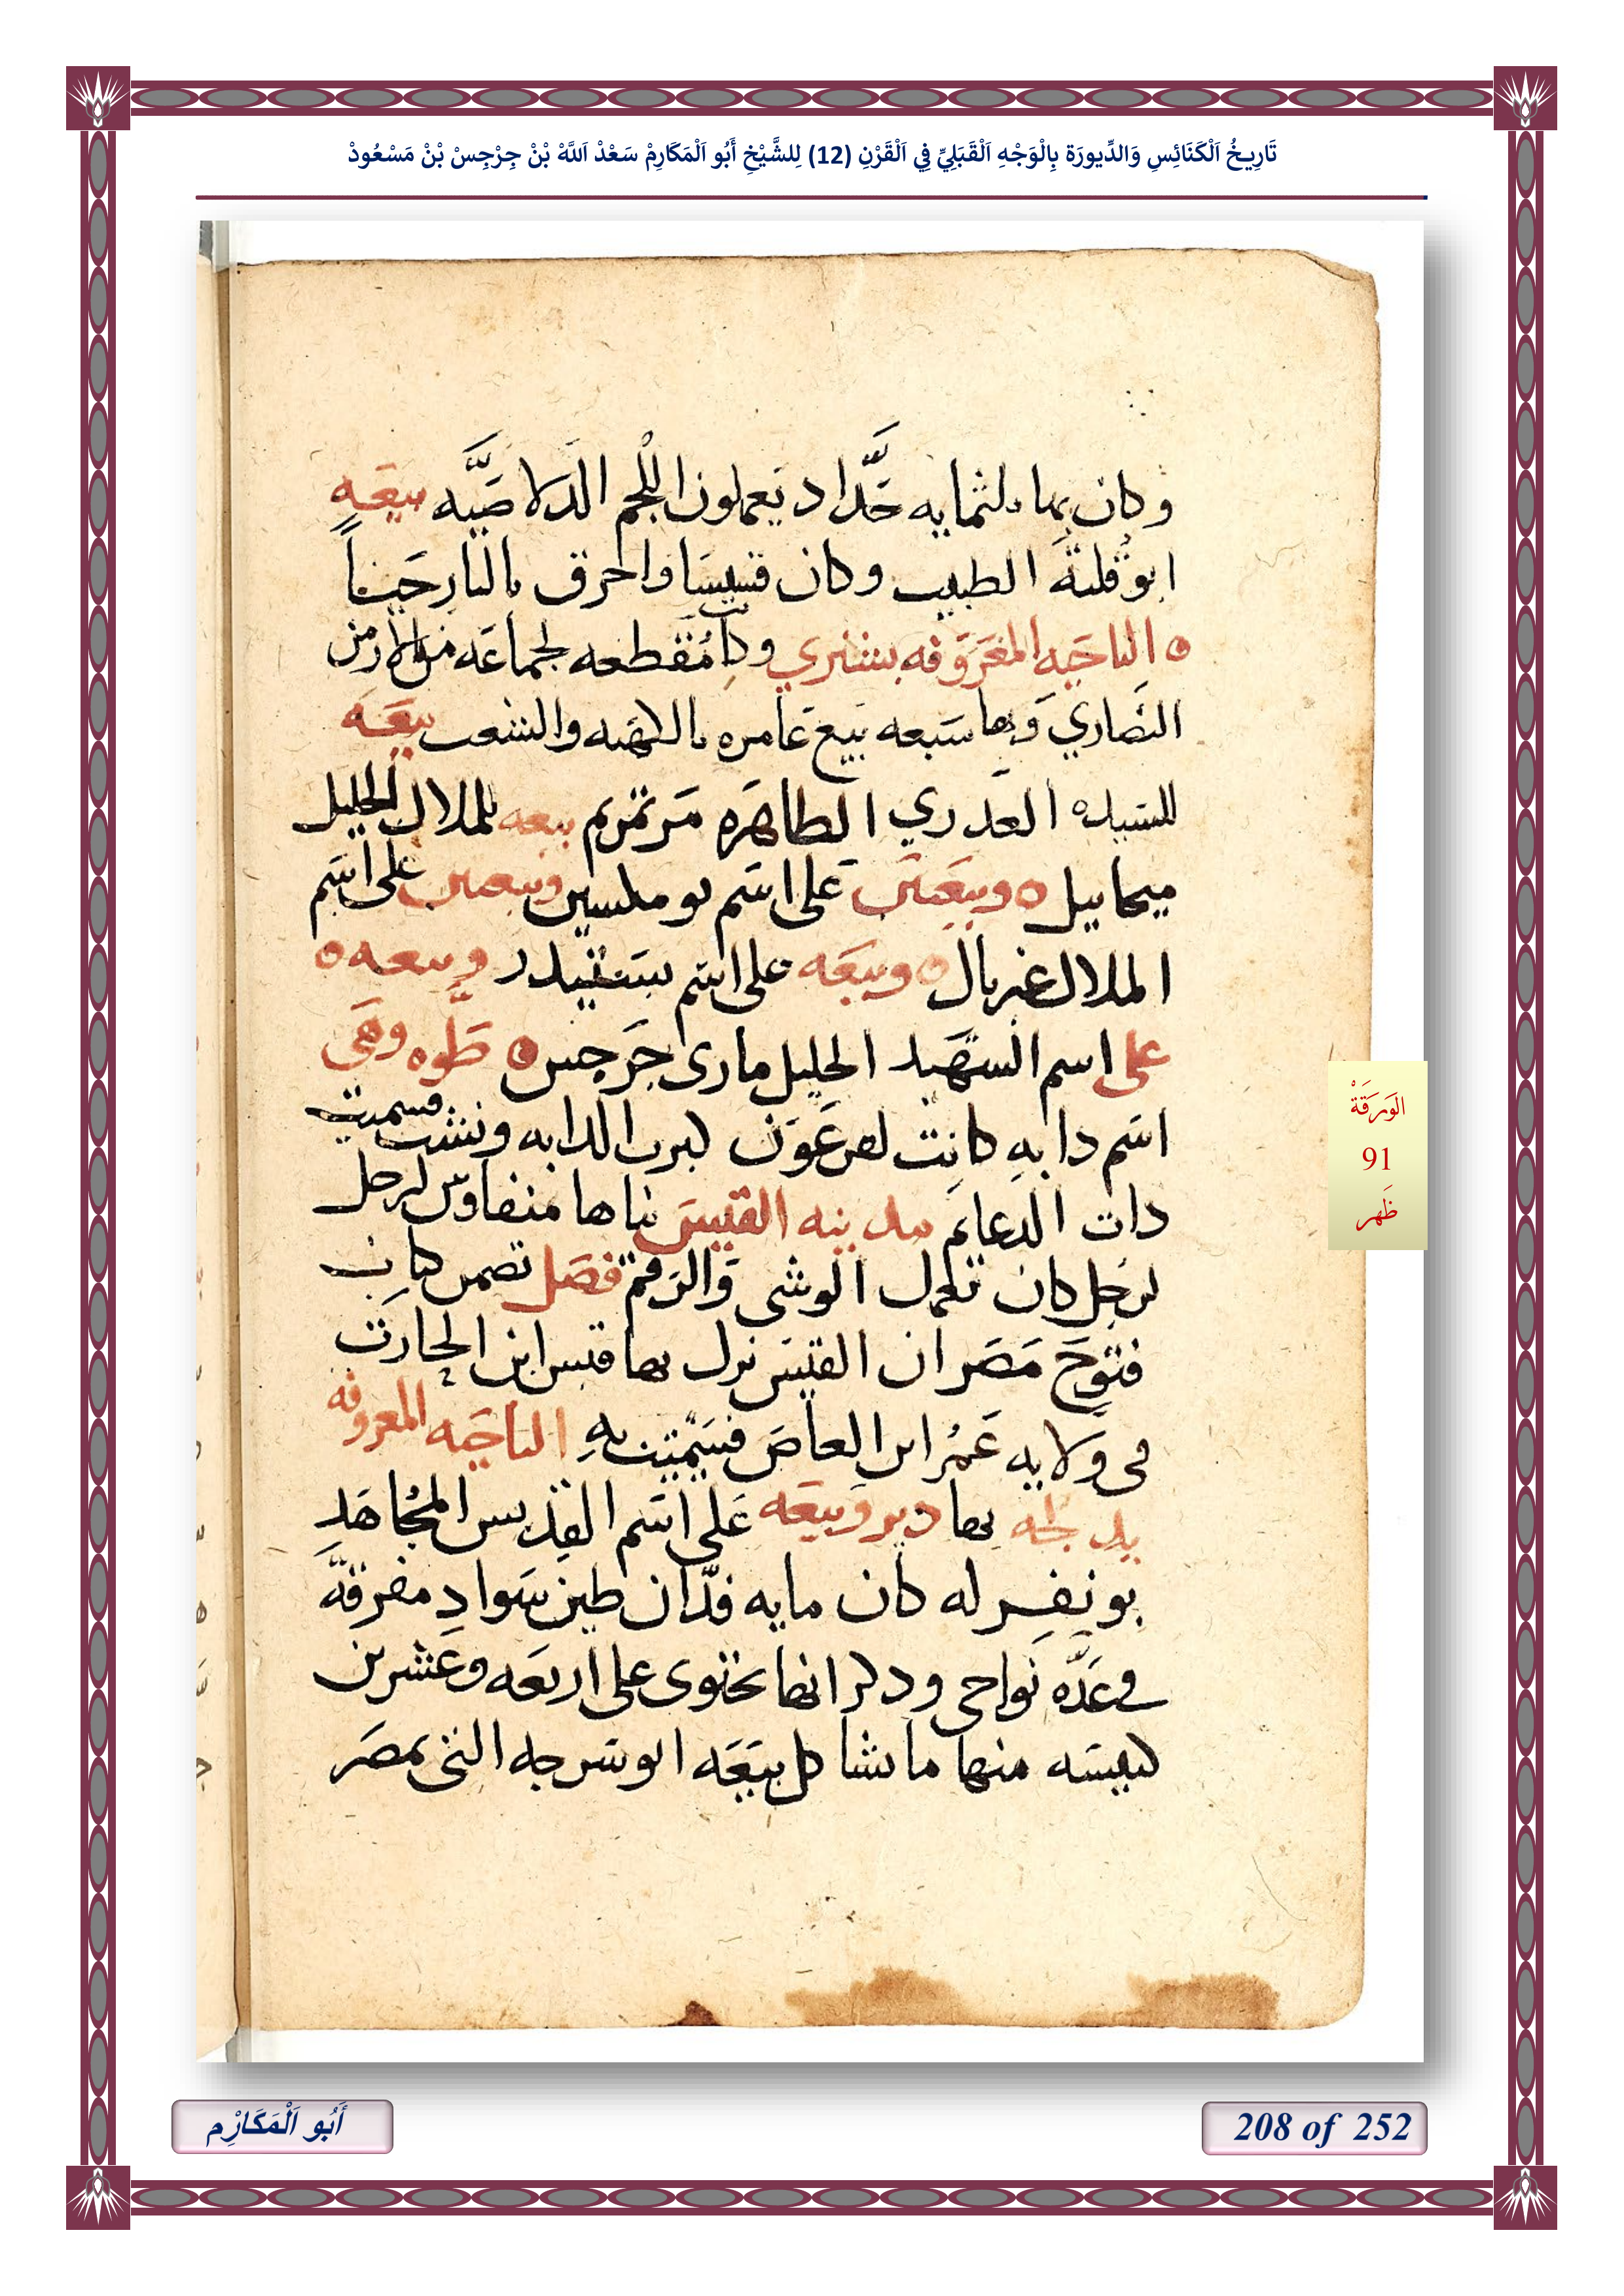 تَارِيخُ اَلْكَنَائِسِ وَالدِّيورَة بِالْوَجْهِ اَلْقَبَلِيِّ فِي اَلْقَرْنِ (12) لِلشَّيْخِ أَبُو اَلْمَكَارِمْ سَعْدْ اَللَّهْ بْنْ جِرْجِسْ بْنْ مَسْعُودْ
وكان بها ثلثمايه حَدَّاد يَعملون اللُّجم الدلاصيَّه بيعَه
ابو قلته الطبيب وكان قسيسَا واحرق بالنار حَيَاً
الناحَيه المعَرَوفه بششري وكانت مُقطعه لجماعَه من الارمن
النصَاري وَبها سَبعه بيَع عَامره بالكهنه والشعب بيعَه
للسيده العدري الطاهَره مَرتمريم بيعه للملاك الجليل
ميخاييل وبيَعتين على اسَم بو مقسين وبيعتين على اسَم
الملاك غبريال وبيعَه على اسم بستيدر وبيعه
على اسم الشهيد الجليل مارى جَرجس طَوه وهَى
اسَم دابه كانت لفرعَون كبرت الدابه ونشت فسميت
دات الدعايم مدينه القيسَ بناها منفاوس لرجل
لرجل كان يعمل الوشى وَالرقم فصَل تضمن كتاب
فتوحَ مَصَر ان القيسَ نزل بها قيس ابن الحارَت
فى ولايه عَمُر ابن العاصَ فسَميَت به الناحَيه المعروفه
بدلجه بها دير وبيعَه عَلى اسَم القديس المُجاهَد
بو نفر له كان مايه فدَّان طين سَواد مفرقة
في عدَّه نواحى ودكر انها تحتوى على اربعَه وعَشرين
كنيسَه منها ما شاكل بيَعَه ابو سَرجه التى بمصَر
الوَرَقَةْ
91
ظَهر
أَبُو اَلْمَكَارْمِ
208 of 252